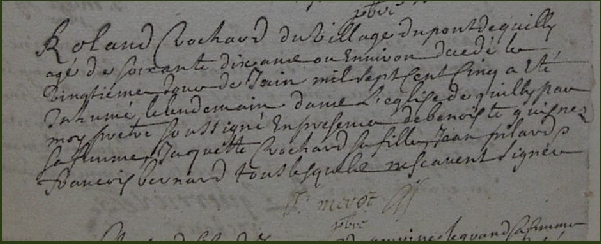 pbre
Roland Rochard du village du pont de quilly
agé de soixante dix ans ou Environ decedé le
vingtième jour de Juin mil sept cent cinq a eté
Inhumé le lendemain dans l'eglise de quilly par
moy prêtre soussigné En presence de benoiste
sa femme, Jaquette Rochard sa fille, Jean
francois bernard tous lesquels ne scavent signer
pbre